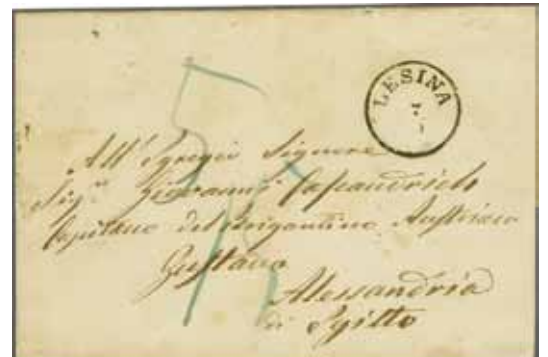 LESINA
7
5
All' Egregio Signore
Sig.r Giovanni
Capitano del Brigantino Austriaco
Gustavo
Alessandria
di Egitto